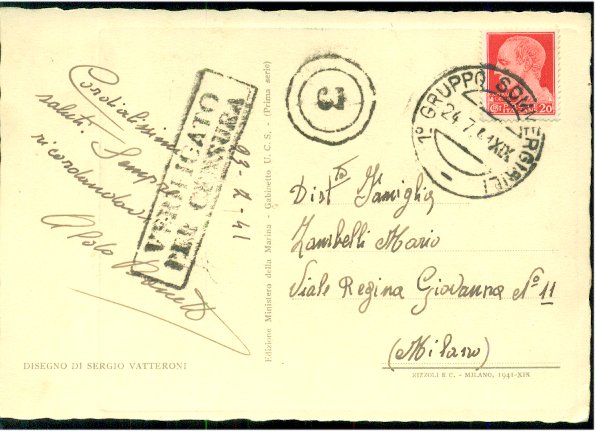 Cordialissimi
saluti. Sempre
ricordandovi
Aldo
VERIFICATO
PER CENSURA
23-7-41
DISEGNO DI SERGIO VATTERONI
Edizione Ministero della Marina - Gabinetto U. C. S. - (Prima serie)
3
1° GRUPPO SOMMERGIBILI
24.7.41 XIX
20
Distta Famiglia
Zambelli Mario
Viale Regina Giovanna N° 11
(Milano)
RIZZOLI E C. - MILANO, 1941-XIX